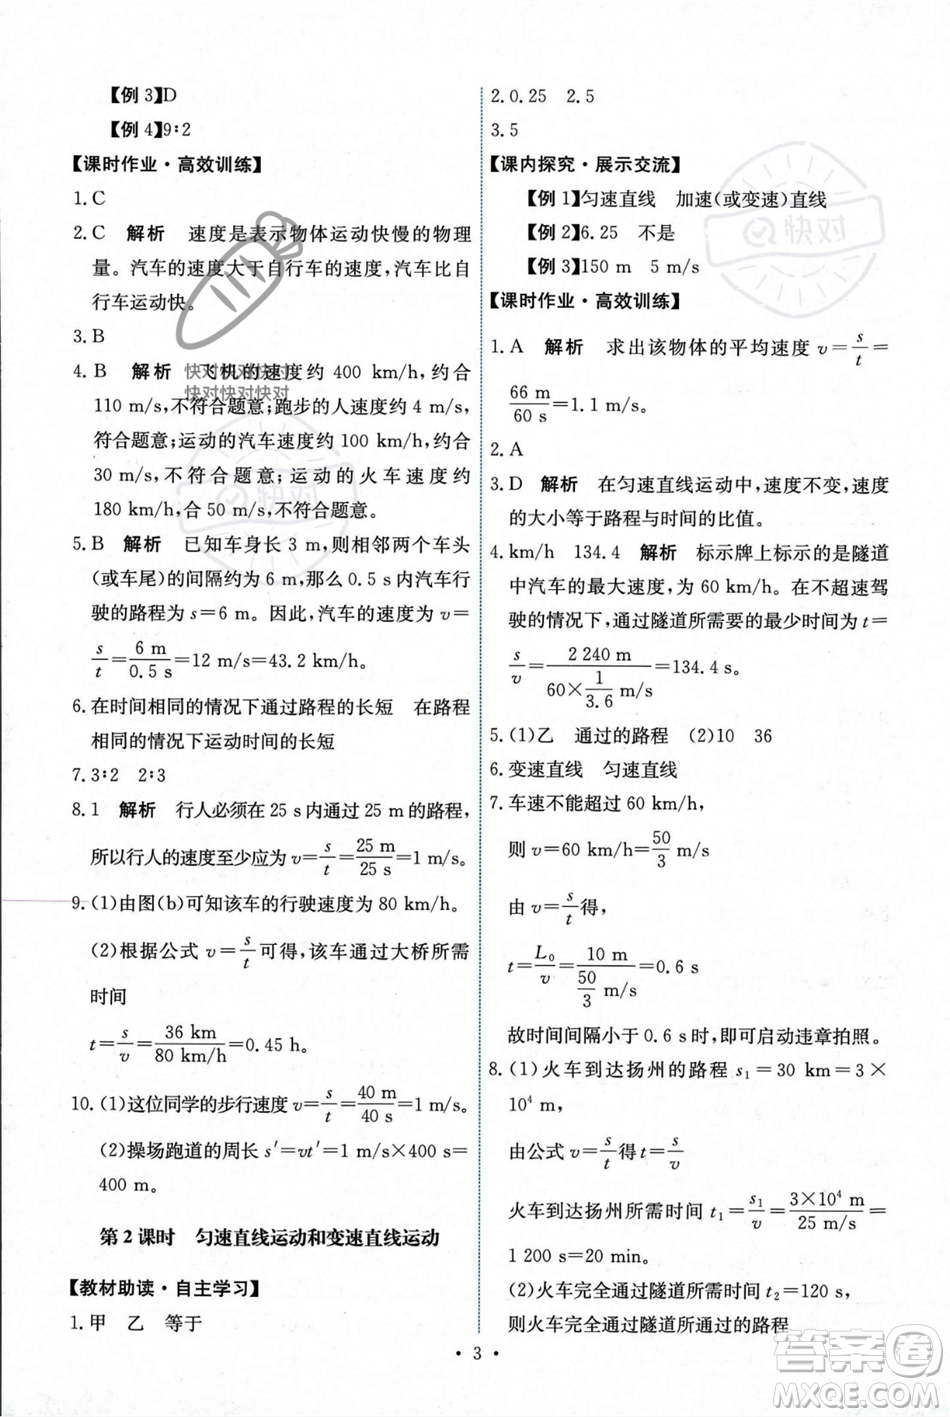 【例 3】D
【例 4】9∶2
【课时作业·高效训练】
1. C
2. C 解析 速度是表示物体运动快慢的物理
量。汽车的速度大于自行车的速度,汽车比自
行车运动快。
3. B
4. B 解析 飞机的速度约 400 km/h,约合
110 m/s,不符合题意;跑步的人速度约 4 m/s,
符合题意;运动的汽车速度约 100 km/h,约合
30 m/s,不符合题意;运动的火车速度约
180 km/h,合 50 m/s,不符合题意。
5. B 解析 已知车身长 3 m,则相邻两个车头
(或车尾)的间隔约为 6 m,那么 0.5 s 内汽车行
驶的路程为 s=6 m。因此,汽车的速度为 v=
s/t=6 m/0.5 s=12 m/s=43.2 km/h。
6. 在时间相同的情况下通过路程的长短 在路程
相同的情况下运动时间的长短
7. 3∶2 2∶3
8. 1 解析 行人必须在 25 s 内通过 25 m 的路程,
所以行人的速度至少应为 v=s/t=25 m/25 s=1 m/s。
9. (1)由图(b)可知该车的行驶速度为 80 km/h。
(2)根据公式 v=s/t可得,该车通过大桥所需
时间
t=s/v=36 km/80 km/h=0.45 h。
10. (1)这位同学的步行速度 v=s/t=40 m/40 s=1 m/s。
(2)操场跑道的周长 s′=vt′=1 m/s×400 s=
400 m。
第 2 课时 匀速直线运动和变速直线运动
【教材助读·自主学习】
1. 甲 乙 等于
2. 0.25 2.5
3. 5
【课内探究·展示交流】
【例 1】匀速直线 加速(或变速)直线
【例 2】6.25 不是
【例 3】150 m 5 m/s
【课时作业·高效训练】
1. A 解析 求出该物体的平均速度 v=s/t=
66 m/60 s=1.1 m/s。
2. A
3. D 解析 在匀速直线运动中,速度不变,速度
的大小等于路程与时间的比值。
4. km/h 134.4 解析 标示牌上标示的是隧道
中汽车的最大速度,为 60 km/h。在不超速驾
驶的情况下,通过隧道所需要的最少时间为 t=
s/v=2 240 m/(60×1/3.6 m/s)=134.4 s。
5. (1)乙 通过的路程 (2)10 36
6. 变速直线 匀速直线
7. 车速不能超过 60 km/h,
则 v=60 km/h=50/3 m/s
由 v=s/t得,
t=L₀/v=10 m/(50/3 m/s)=0.6 s
故时间间隔小于 0.6 s 时,即可启动违章拍照。
8. (1)火车到达扬州的路程 s₁=30 km=3×
10⁴ m
由公式 v=s/t得 t=s/v
火车到达扬州的时间 t₁=s₁/v=3×10⁴ m/25 m/s=
1 200 s=20 min。
(2)火车完全通过隧道所需时间 t₂=120 s,
则火车完全通过隧道所通过的路程
· 3 ·
快对
快对
快对快对快对快对
快对快对快对快对
答案圈
MXQE.COM